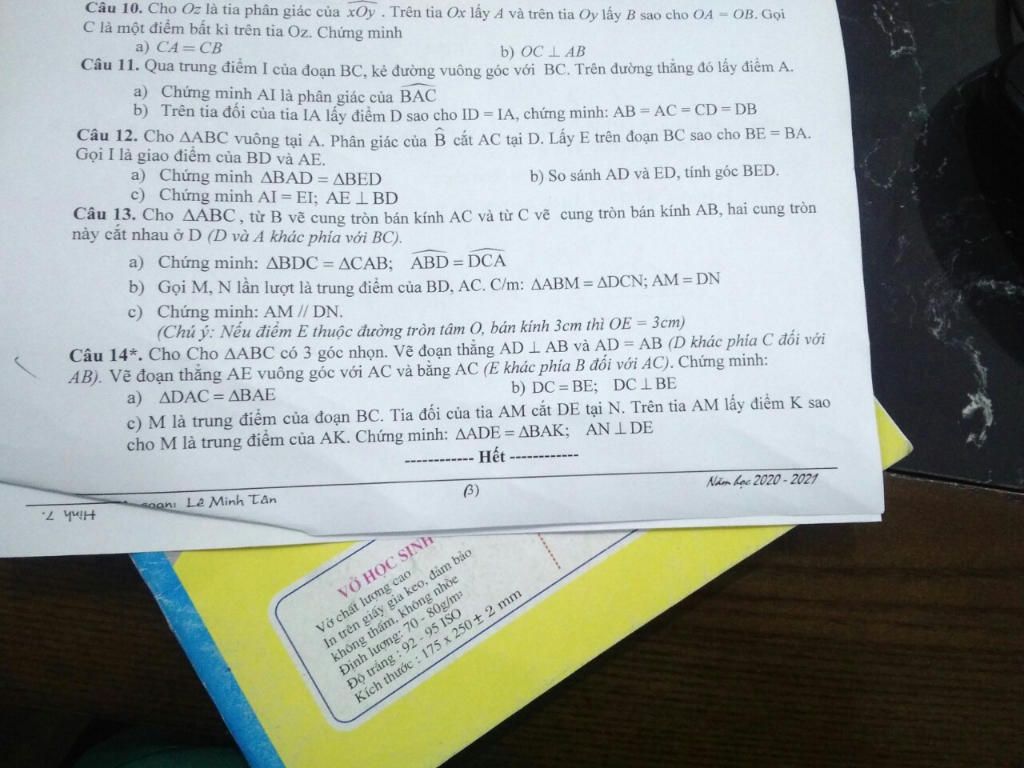 Câu 10. Cho Oz là tia phân giác của xOy . Trên tia Ox lấy A và trên tia Oy lấy B sao cho OA = OB. Gọi
C là một điểm bất kì trên tia Oz. Chứng minh
a) CA = CB b) OC ⊥ AB
Câu 11. Qua trung điểm I của đoạn BC, kẻ đường vuông góc với BC. Trên đường thẳng đó lấy điểm A.
a) Chứng minh AI là phân giác của BAC
b) Trên tia đối của tia IA lấy điểm D sao cho ID = IA, chứng minh: AB = AC = CD = DB
Câu 12. Cho ΔABC vuông tại A. Phân giác của B̂ cắt AC tại D. Lấy E trên đoạn BC sao cho BE = BA.
Gọi I là giao điểm của BD và AE.
a) Chứng minh ΔBAD = ΔBED b) So sánh AD và ED, tính góc BED.
c) Chứng minh AI = EI; AE ⊥ BD
Câu 13. Cho ΔABC , từ B vẽ cung tròn bán kính AC và từ C vẽ cung tròn bán kính AB, hai cung tròn
này cắt nhau ở D (D và A khác phía với BC).
a) Chứng minh: ΔBDC = ΔCAB; ABD = DCA
b) Gọi M, N lần lượt là trung điểm của BD, AC. C/m: ΔABM = ΔDCN; AM = DN
c) Chứng minh: AM // DN.
(Chú ý: Nếu điểm E thuộc đường tròn tâm O, bán kính 3cm thì OE = 3cm)
Câu 14*. Cho Cho ΔABC có 3 góc nhọn. Vẽ đoạn thẳng AD ⊥ AB và AD = AB (D khác phía C đối với
AB). Vẽ đoạn thẳng AE vuông góc với AC và bằng AC (E khác phía B đối với AC). Chứng minh:
a) ΔDAC = ΔBAE b) DC = BE; DC ⊥ BE
c) M là trung điểm của đoạn BC. Tia đối của tia AM cắt DE tại N. Trên tia AM lấy điểm K sao
cho M là trung điểm của AK. Chứng minh: ΔADE = ΔBAK; AN ⊥ DE
------------ Hết ------------
soạn: Lê Minh Tân (3) Năm học 2020 - 2021
Hình 7.
VỞ HỌC SINH
Vở chất lượng cao
In trên giấy gia keo, đảm bảo
không thấm, không nhòe
Định lượng: 70 - 80g/m²
Độ trắng : 92 - 95 ISO
Kích thước : 175 x 250 ± 2 mm